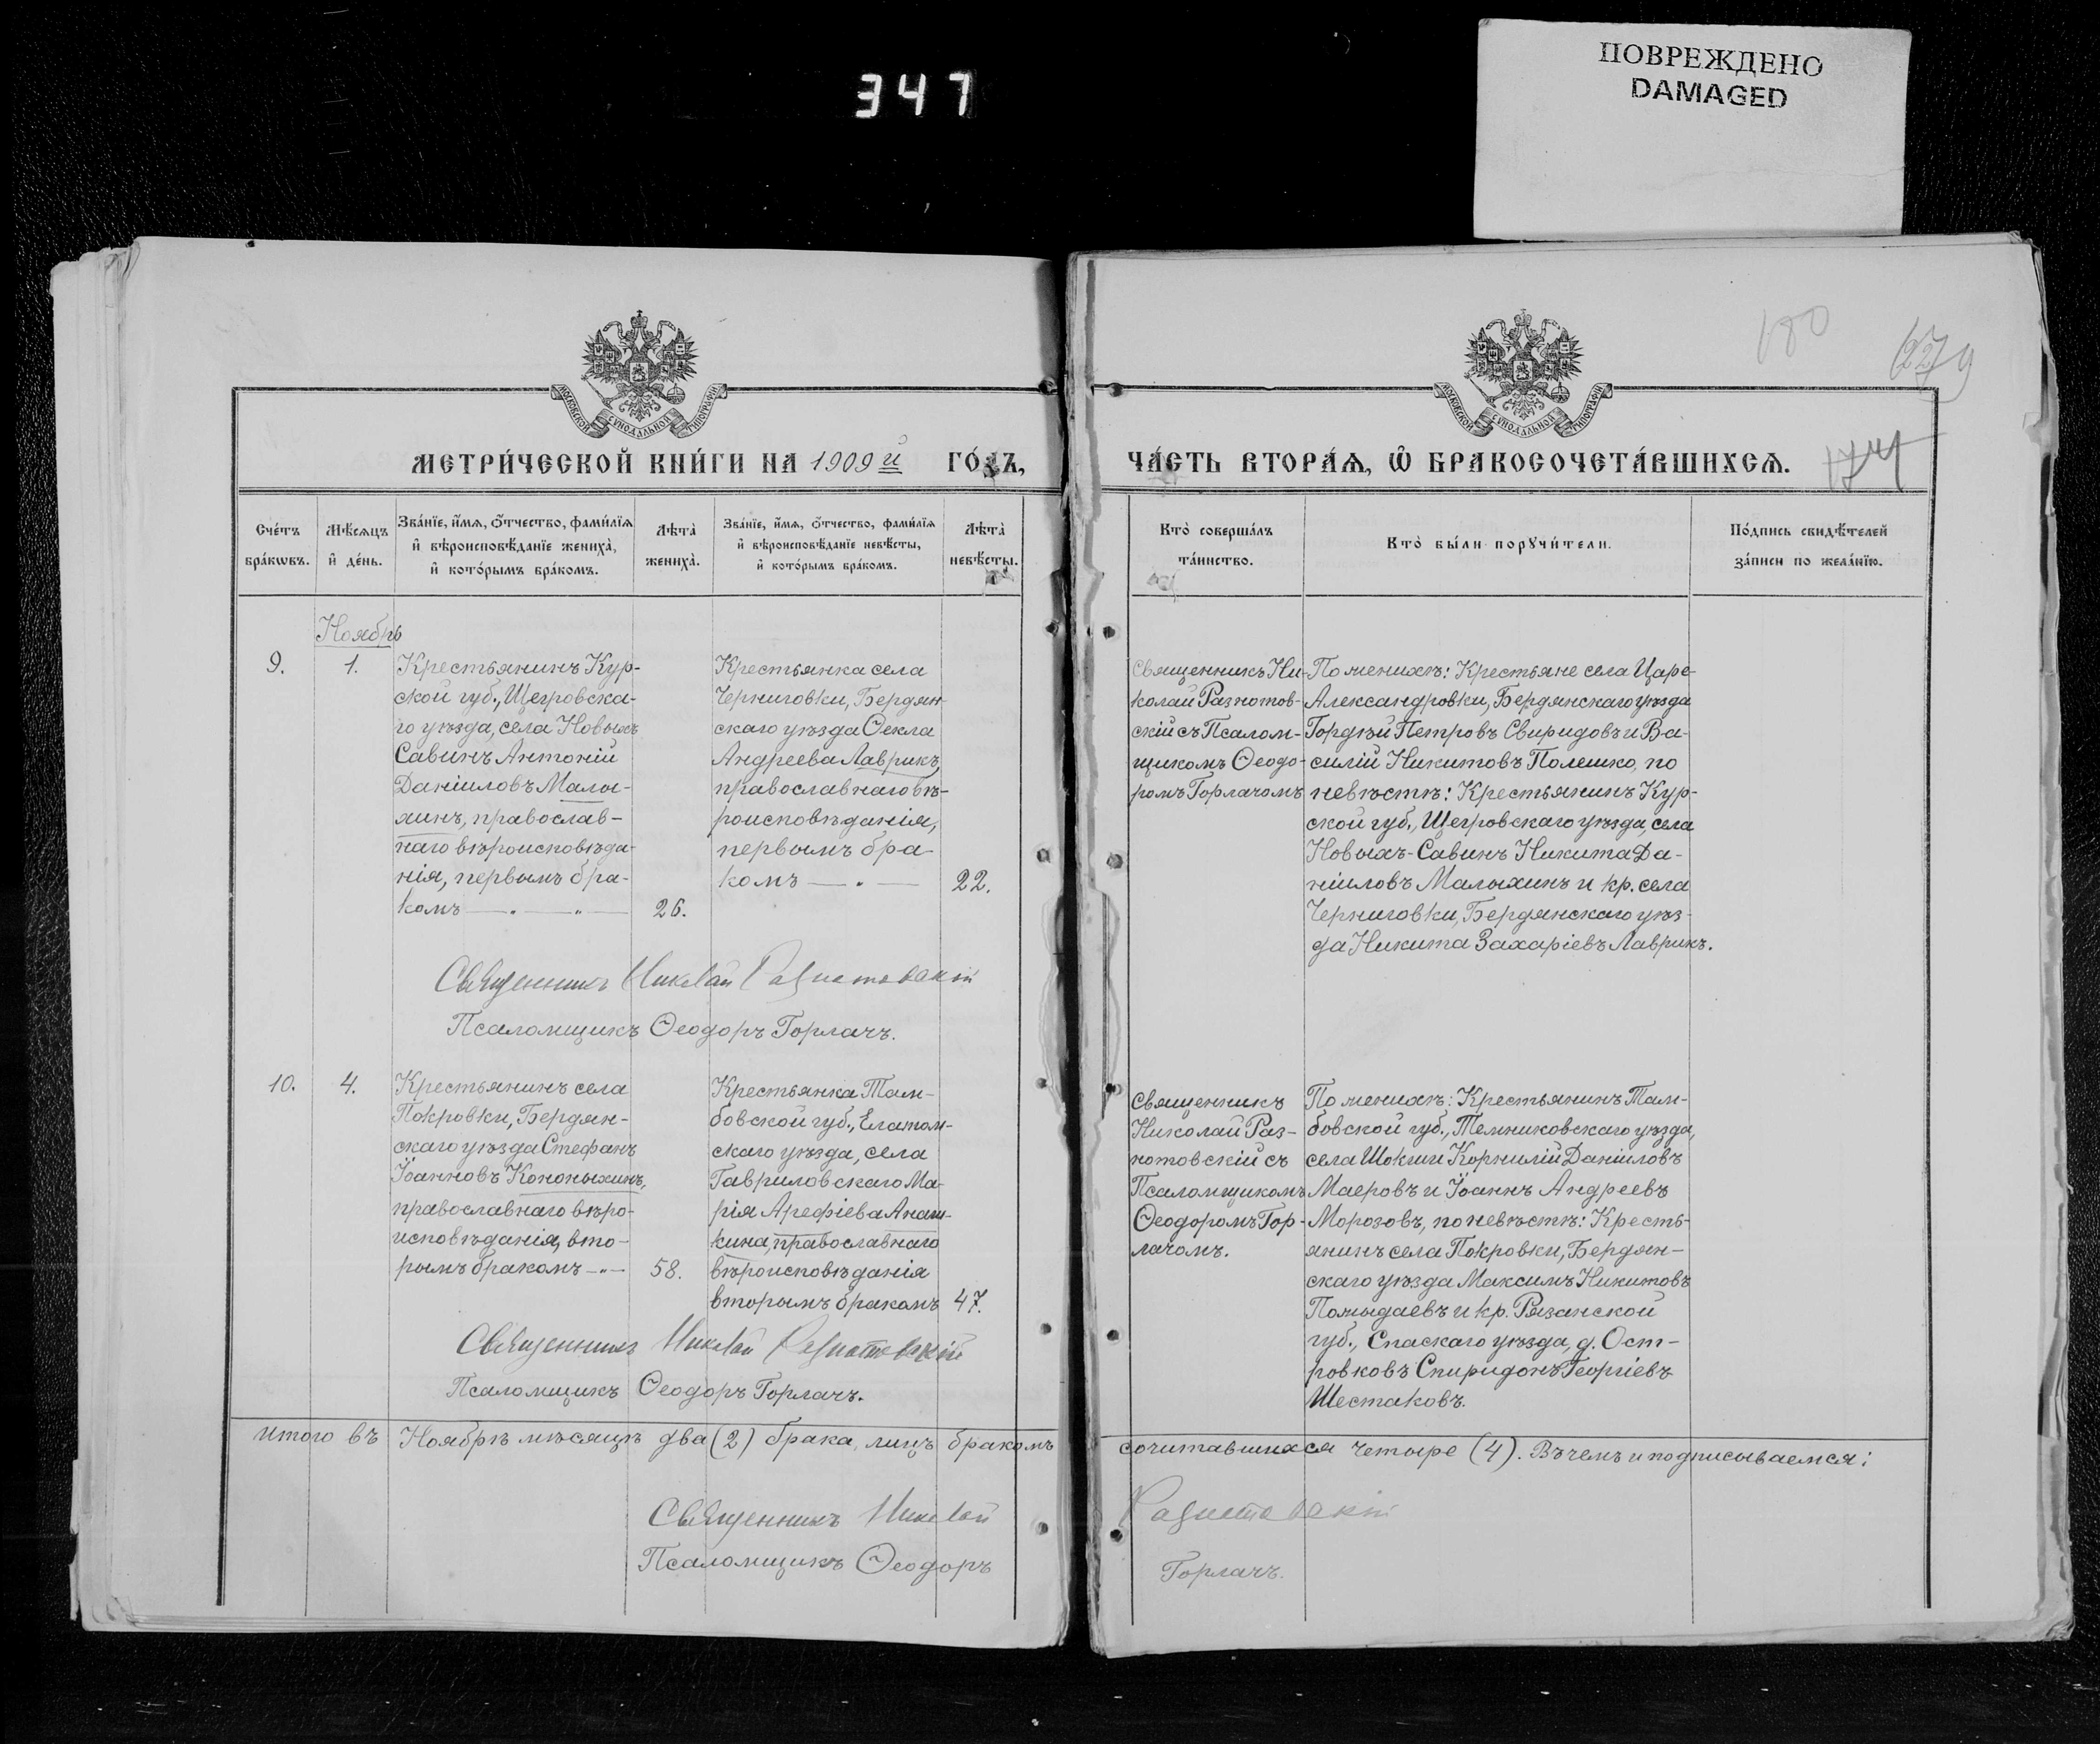 347
ПОВРЕЖДЕНО
DAMAGED
МОСКОВСКОЙ СУНОДАЛЬНОЙ ТИПОГРАФІИ
МОСКОВСКОЙ СУНОДАЛЬНОЙ ТИПОГРАФІИ
180
174
МЕТРИ́ЧЕСКОЙ КНИ́ГИ НА 1909й ГО́ДЪ,
ЧА́СТЬ ВТОРА́Ѧ, Ѽ БРАКОСОЧЕТА́ВШИХСѦ.
Сче́тъ
бра́кѡвъ.
Мѣ́сѧцъ
и҆ де́нь.
Зва́нїе, и҆́мѧ, ѻ҆́тчество, фами́лїѧ
и҆ вѣроисповѣ́данїе жениха̀,
и҆ кото́рымъ бра́комъ.
Лѣта̀
жениха̀.
Зва́нїе, и҆́мѧ, ѻ҆́тчество, фами́лїѧ
и҆ вѣроисповѣ́данїе невѣ́сты,
и҆ кото́рымъ бра́комъ.
Лѣта̀
невѣ́сты.
Кто̀ соверша́лъ
та́инство.
Кто̀ бы́ли порꙋчи́тели.
По́дпись свидѣ́телей
за́писи по жела́нїю.
Ноябрь
9.
1.
Крестьянинъ Кур-
ской губ., Щегровска-
го уѣзда, села Новыхъ
Савинъ Антоній
Даніиловъ Малы-
хинъ, православ-
наго вѣроисповѣда-
нія, первымъ бра-
комъ — " — " —
26.
Крестьянка села
Черниговки, Бердян-
скаго уѣзда Ѳекла
Андреева Лаврикъ,
православнаго вѣ-
роисповѣданія,
первымъ бра-
комъ — " —
22.
Священникъ Ни-
колай Разнотов-
скій съ Псалом-
щикомъ Ѳеодо-
ромъ Горлачомъ
По женихѣ: Крестьяне села Царе-
Александровки, Бердянскаго уѣзда
Гордѣй Петровъ Свиридовъ и Ва-
силій Никитовъ Полешко, по
невѣстѣ: Крестьянинъ Кур-
ской губ., Щегровскаго уѣзда, села
Новыхъ-Савинъ Никита Да-
ніиловъ Малыхинъ и кр. села
Черниговки, Бердянскаго уѣз-
да Никита Захаріевъ Лаврикъ.
Священникъ Николай Разнотовскій
Псаломщикъ Ѳеодоръ Горлачъ.
10.
4.
Крестьянинъ села
Покровки, Бердян-
скаго уѣзда Стефанъ
Іоанновъ Кононыхинъ,
православнаго вѣро-
исповѣданія, вто-
рымъ бракомъ — " —
58.
Крестьянка Там-
бовской губ., Елатом-
скаго уѣзда, села
Гавриловскаго Ма-
рія Арефіева Анаш-
кина, православнаго
вѣроисповѣданія
вторымъ бракомъ
47.
Священникъ
Николай Раз-
нотовскій съ
Псаломщикомъ
Ѳеодоромъ Гор-
лачомъ.
По женихѣ: Крестьянинъ Там-
бовской губ., Темниковскаго уѣзда,
села Шокши Корнилій Даніиловъ
Маеровъ и Іоаннъ Андреевъ
Морозовъ, по невѣстѣ: Кресть-
янинъ села Покровки, Бердян-
скаго уѣзда Максимъ Никитовъ
Помыдаевъ и кр. Рязанской
губ., Спаскаго уѣзда, д. Ост-
ровковъ Спиридонъ Георгіевъ
Шестаковъ.
Священникъ Николай Разнотовскій
Псаломщикъ Ѳеодоръ Горлачъ.
Итого въ Ноябрѣ мѣсяцѣ два (2) брака, лицъ бракомъ сочитавшихся четыре (4). Въ чемъ и подписываемся:
Священникъ Николай Разнотовскій
Псаломщикъ Ѳеодоръ Горлачъ.